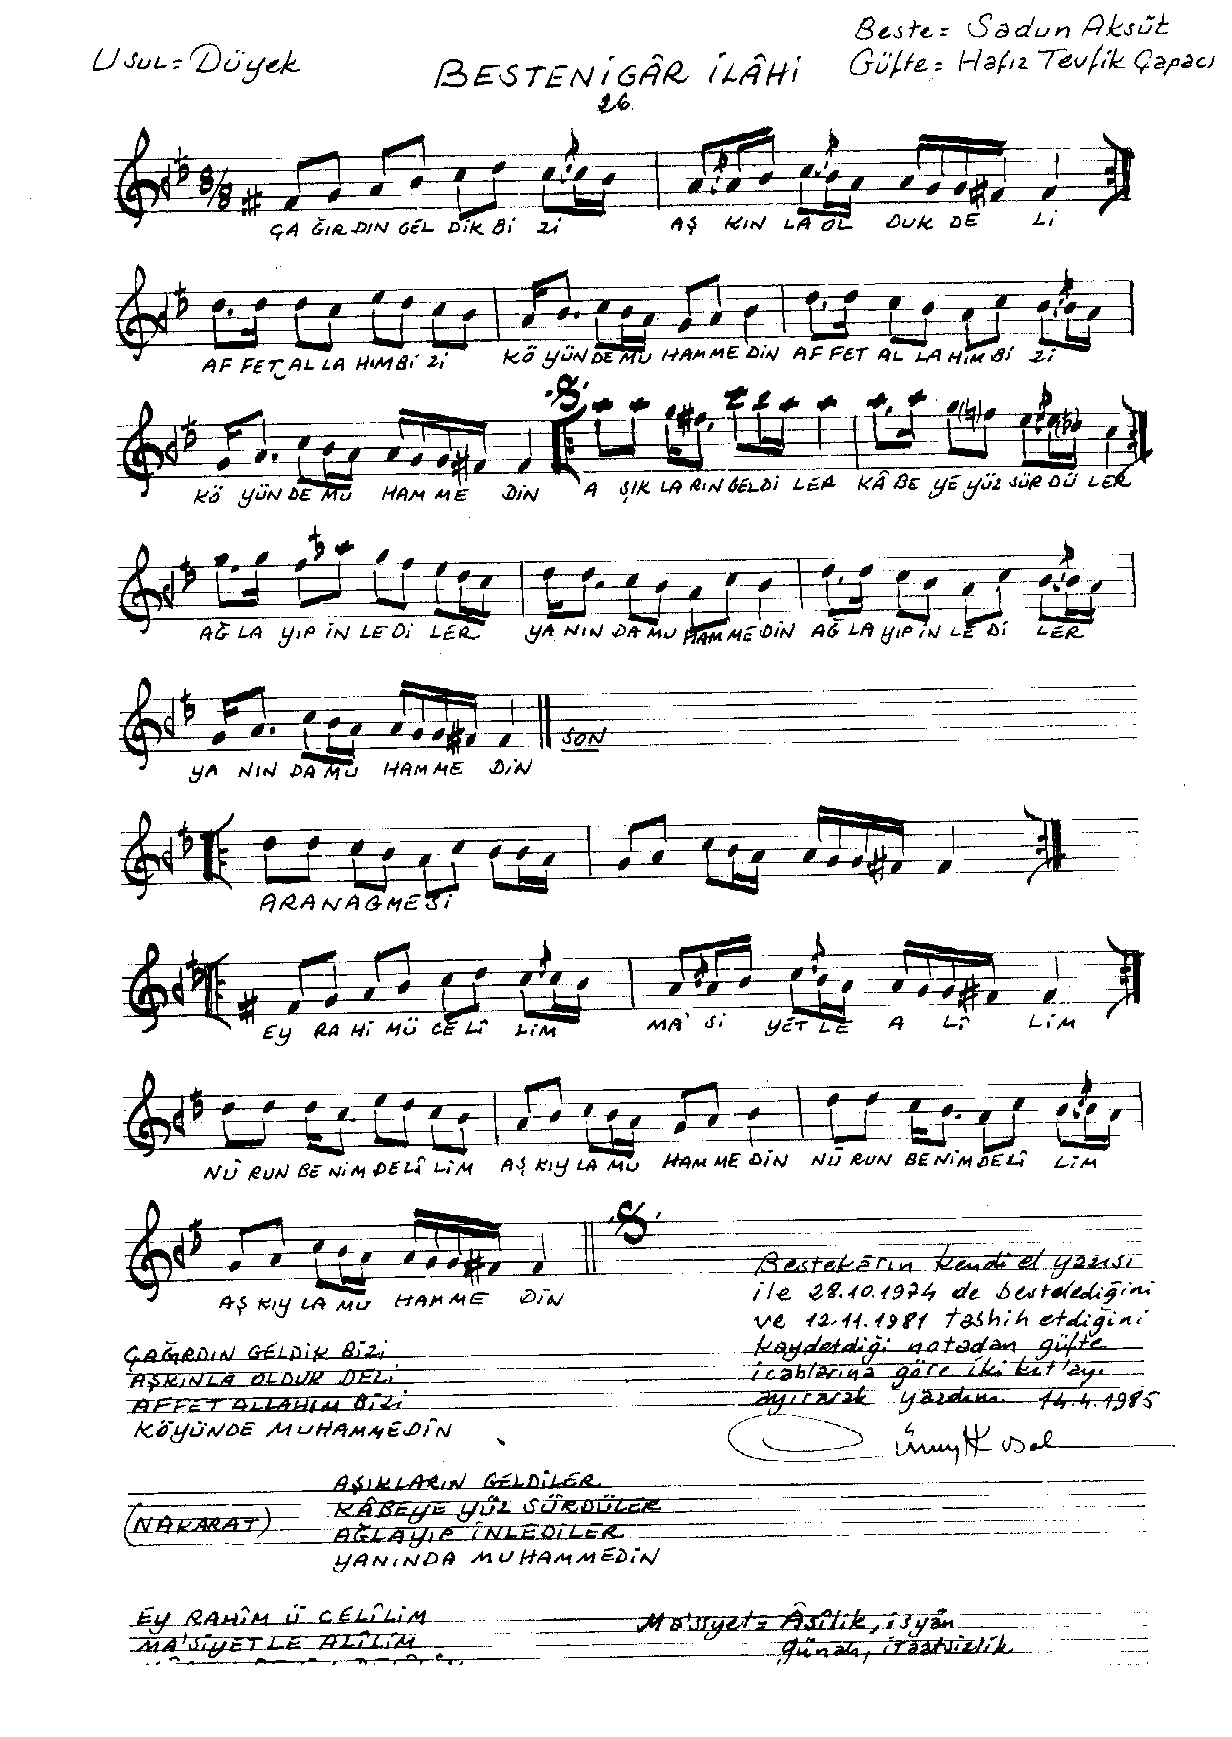 Usul = Düyek
Beste = Sadun Aksüt
Güfte = Hafız Tevfik Çapacı
BESTENİGÂR İLÂHİ
26
8/8
ÇA ĞIR DIN GEL DİK Bİ Zİ AŞ KIN LA OL DUK DE Lİ
AF FET AL LA HIM Bİ Zİ KÖ YÜN DE MU HAM ME DİN AF FET AL LA HIM Bİ Zİ
KÖ YÜN DE MU HAM ME DİN A ŞIK LA RIN GEL Dİ LER KÂ BE YE YÜZ SÜR DÜ LER
AĞ LA YIP İN LE Dİ LER YA NIN DA MU HAM ME DİN AĞ LA YIP İN LE Dİ LER
SON
YA NIN DA MU HAM ME DİN
ARANAGMESİ
EY RA HI MÜ CE LÎ LİM MA' Sİ YET LE A LÎ LİM
NÛ RUN BE NİM DE LÎ LİM AŞ KIY LA MU HAM ME DİN NÛ RUN BE NİM DE LÎ LİM
AŞ KIY LA MU HAM ME DİN
Bestekârın kendi el yazısı
ile 28.10.1974 de bestelediğini
ve 12.11.1981 tashih etdiğini
kaydetdiği notadan güfte
icablarına göre iki kıt'ayı
ayırarak yazdım 14.4.1985
ÇAĞRDIN GELDİK BİZİ
AŞKINLA OLDUK DELİ
AFFET ALLAHIM BİZİ
KÖYÜNDE MUHAMMEDİN
AŞIKLARIN GELDİLER
KÂBEYE YÜZ SÜRDÜLER
(NAKARAT)
AĞLAYIP İNLEDİLER
YANINDA MUHAMMEDİN
EY RAHÎM Ü CELÎLİM
MA'SİYETLE ALÎLİM
Ma'siyet = Âsîlik, isyân
günah, itaatsizlik